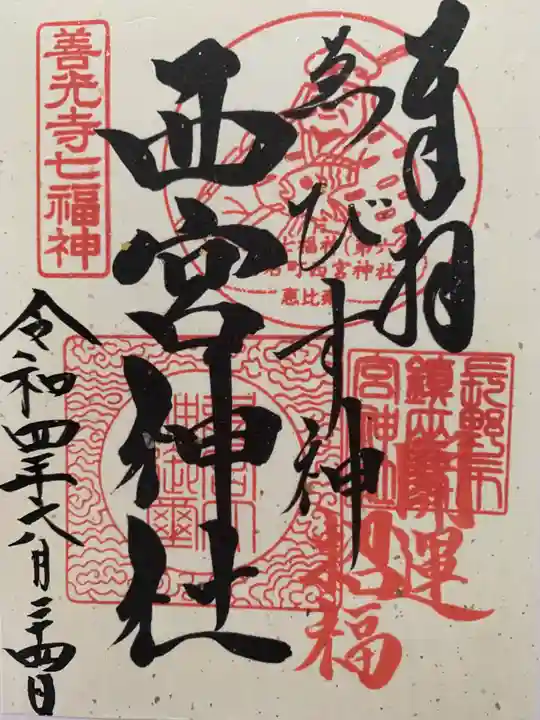 奉拝
ゑびす神
西宮神社
善光寺七福神
令和四年八月二十四日
七福神(第六
岩町西宮神社
恵比寿
長野市
鎮座
宮神社
開運
招福